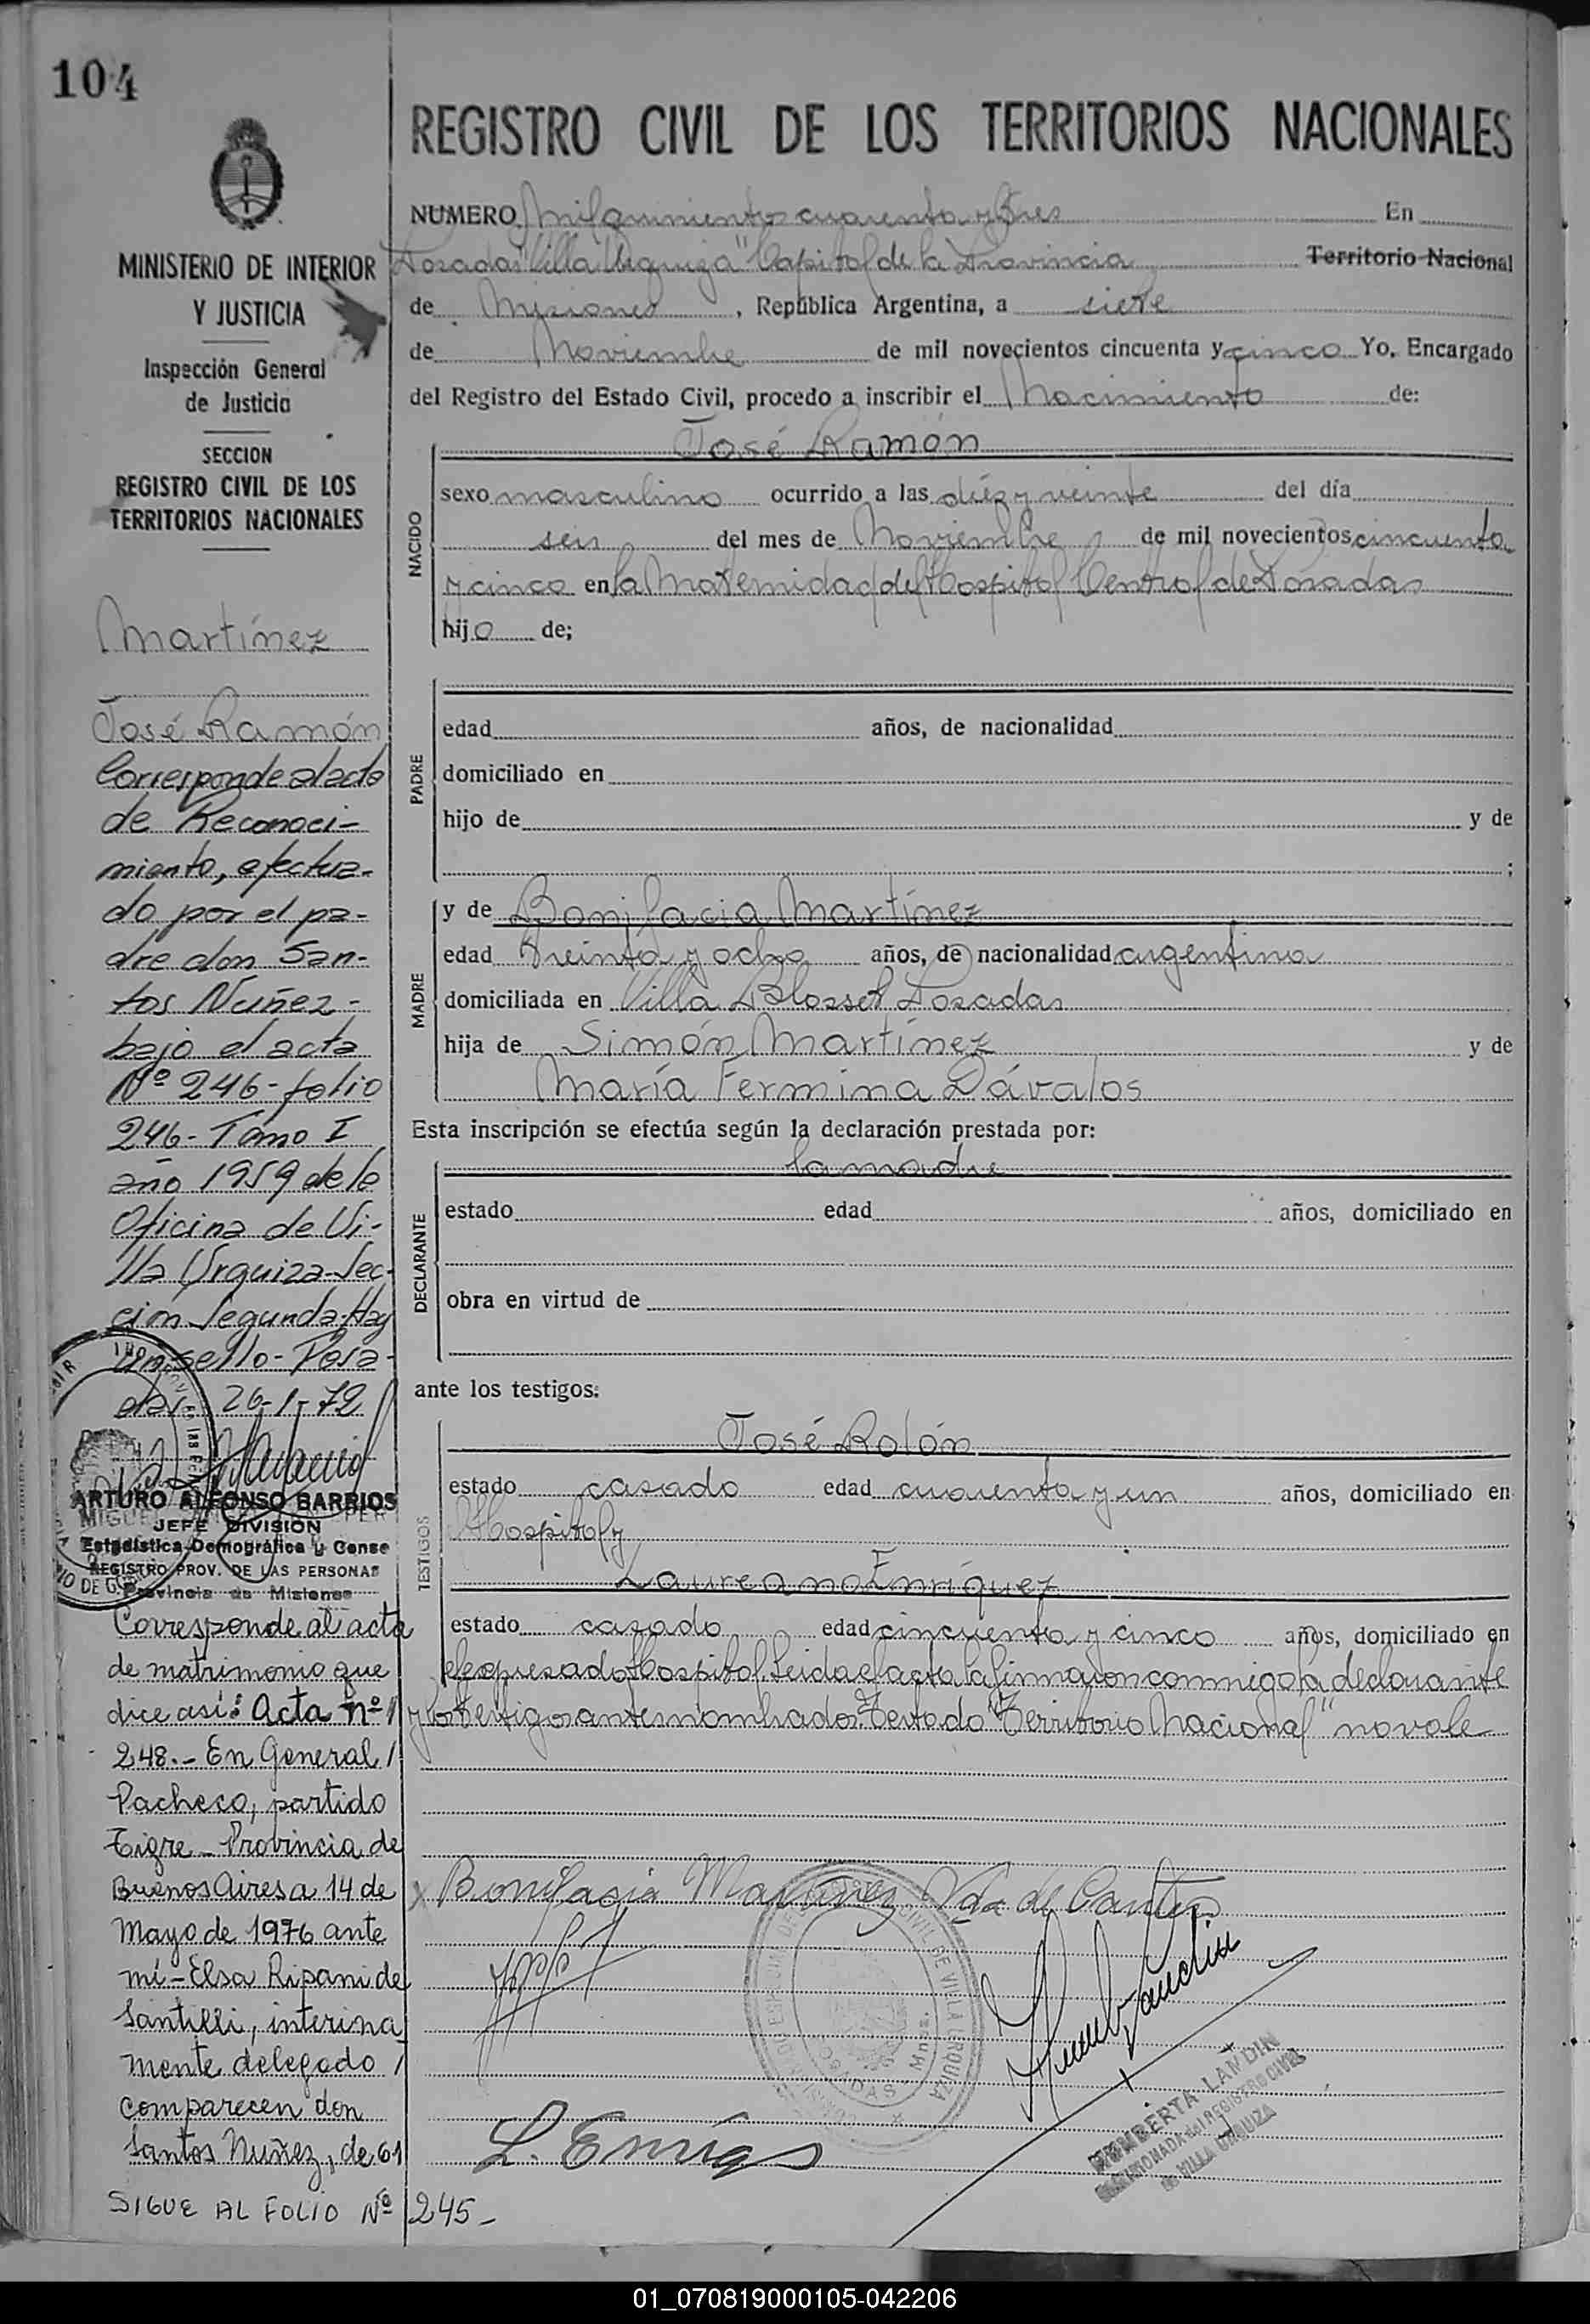 104
REGISTRO CIVIL DE LOS TERRITORIOS NACIONALES
MINISTERIO DE INTERIOR
Y JUSTICIA
Inspección General
de Justicia
SECCION
REGISTRO CIVIL DE LOS
TERRITORIOS NACIONALES
Martínez
José Ramón
Corresponde al acta
de Reconoci-
miento, efectua-
do por el pa-
dre don San-
tos Nuñez-
bajo el acta
Nº 246- folio
246- Tomo I
año 1959 de la
Oficina de Vi-
lla Urquiza-Sec-
ción Segunda-Hay
un sello- Posa-
das 26-1-72
ARTURO ALFONSO BARRIOS
JEFE DIVISION
Estadística Demográfica y Censo
REGISTRO PROV. DE LAS PERSONAS
Provincia de Misiones
Corresponde al acta
de matrimonio que
dice así: Acta nº
248.- En General
Pacheco, partido
Tigre - Provincia de
Buenos Aires a 14 de
Mayo de 1976 ante
mí - Elsa Ripani de
Santilli, interina
mente delegado
comparecen don
Santos Nuñez, de 61
SIGUE AL FOLIO Nº 245-
NUMERO Mil quinientos cuarenta y tres En
Posadas "Villa Urquiza" Capital de la Provincia Territorio Nacional
de Misiones, República Argentina, a siete
de Noviembre de mil novecientos cincuenta y cinco Yo, Encargado
del Registro del Estado Civil, procedo a inscribir el Nacimiento de:
NACIDO
José Ramón
sexo masculino ocurrido a las diez y veinte del día
seis del mes de Noviembre de mil novecientos cincuenta
y cinco en la Maternidad del Hospital Central de Posadas
hijo de;
PADRE
edad años, de nacionalidad
domiciliado en
hijo de y de
;
MADRE
y de Bonifacia Martínez
edad treinta y ocho años, de nacionalidad argentina
domiciliada en Villa Blosset Posadas
hija de Simón Martínez y de
María Fermina Dávalos
Esta inscripción se efectúa según la declaración prestada por:
DECLARANTE
la madre
estado edad años, domiciliado en
obra en virtud de
ante los testigos:
TESTIGOS
José Rolón
estado casado edad cuarenta y un años, domiciliado en
Hospital y
Laureano Enríquez
estado casado edad cincuenta y cinco años, domiciliado en
el expresado Hospital. Leida el acta la firmaron conmigo la declarante
y los testigos antes nombrados. Testado "Territorio Nacional" no vale
x Bonifacia Martinez Vda de Cantero
L. Enrigs
HUMBERTA LANDIN
ENCARGADA del REGISTRO CIVIL
de VILLA URQUIZA
01_070819000105-042206